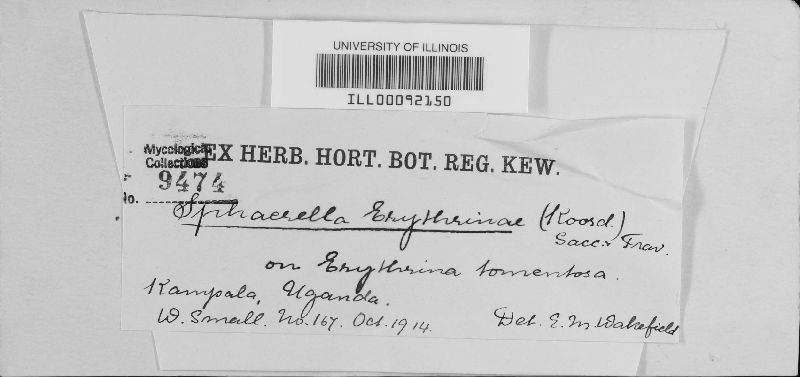 UNIVERSITY OF ILLINOIS
ILL00092150
Mycological
Collections
EX HERB. HORT. BOT. REG. KEW.
No. 9474
Sphaerella Erythrinae (Koord.)
Sacc. & Trav.
on Erythrina tomentosa.
Kampala, Uganda.
W. Small. No. 167. Oct. 1914.
Det. E. M. Wakefield